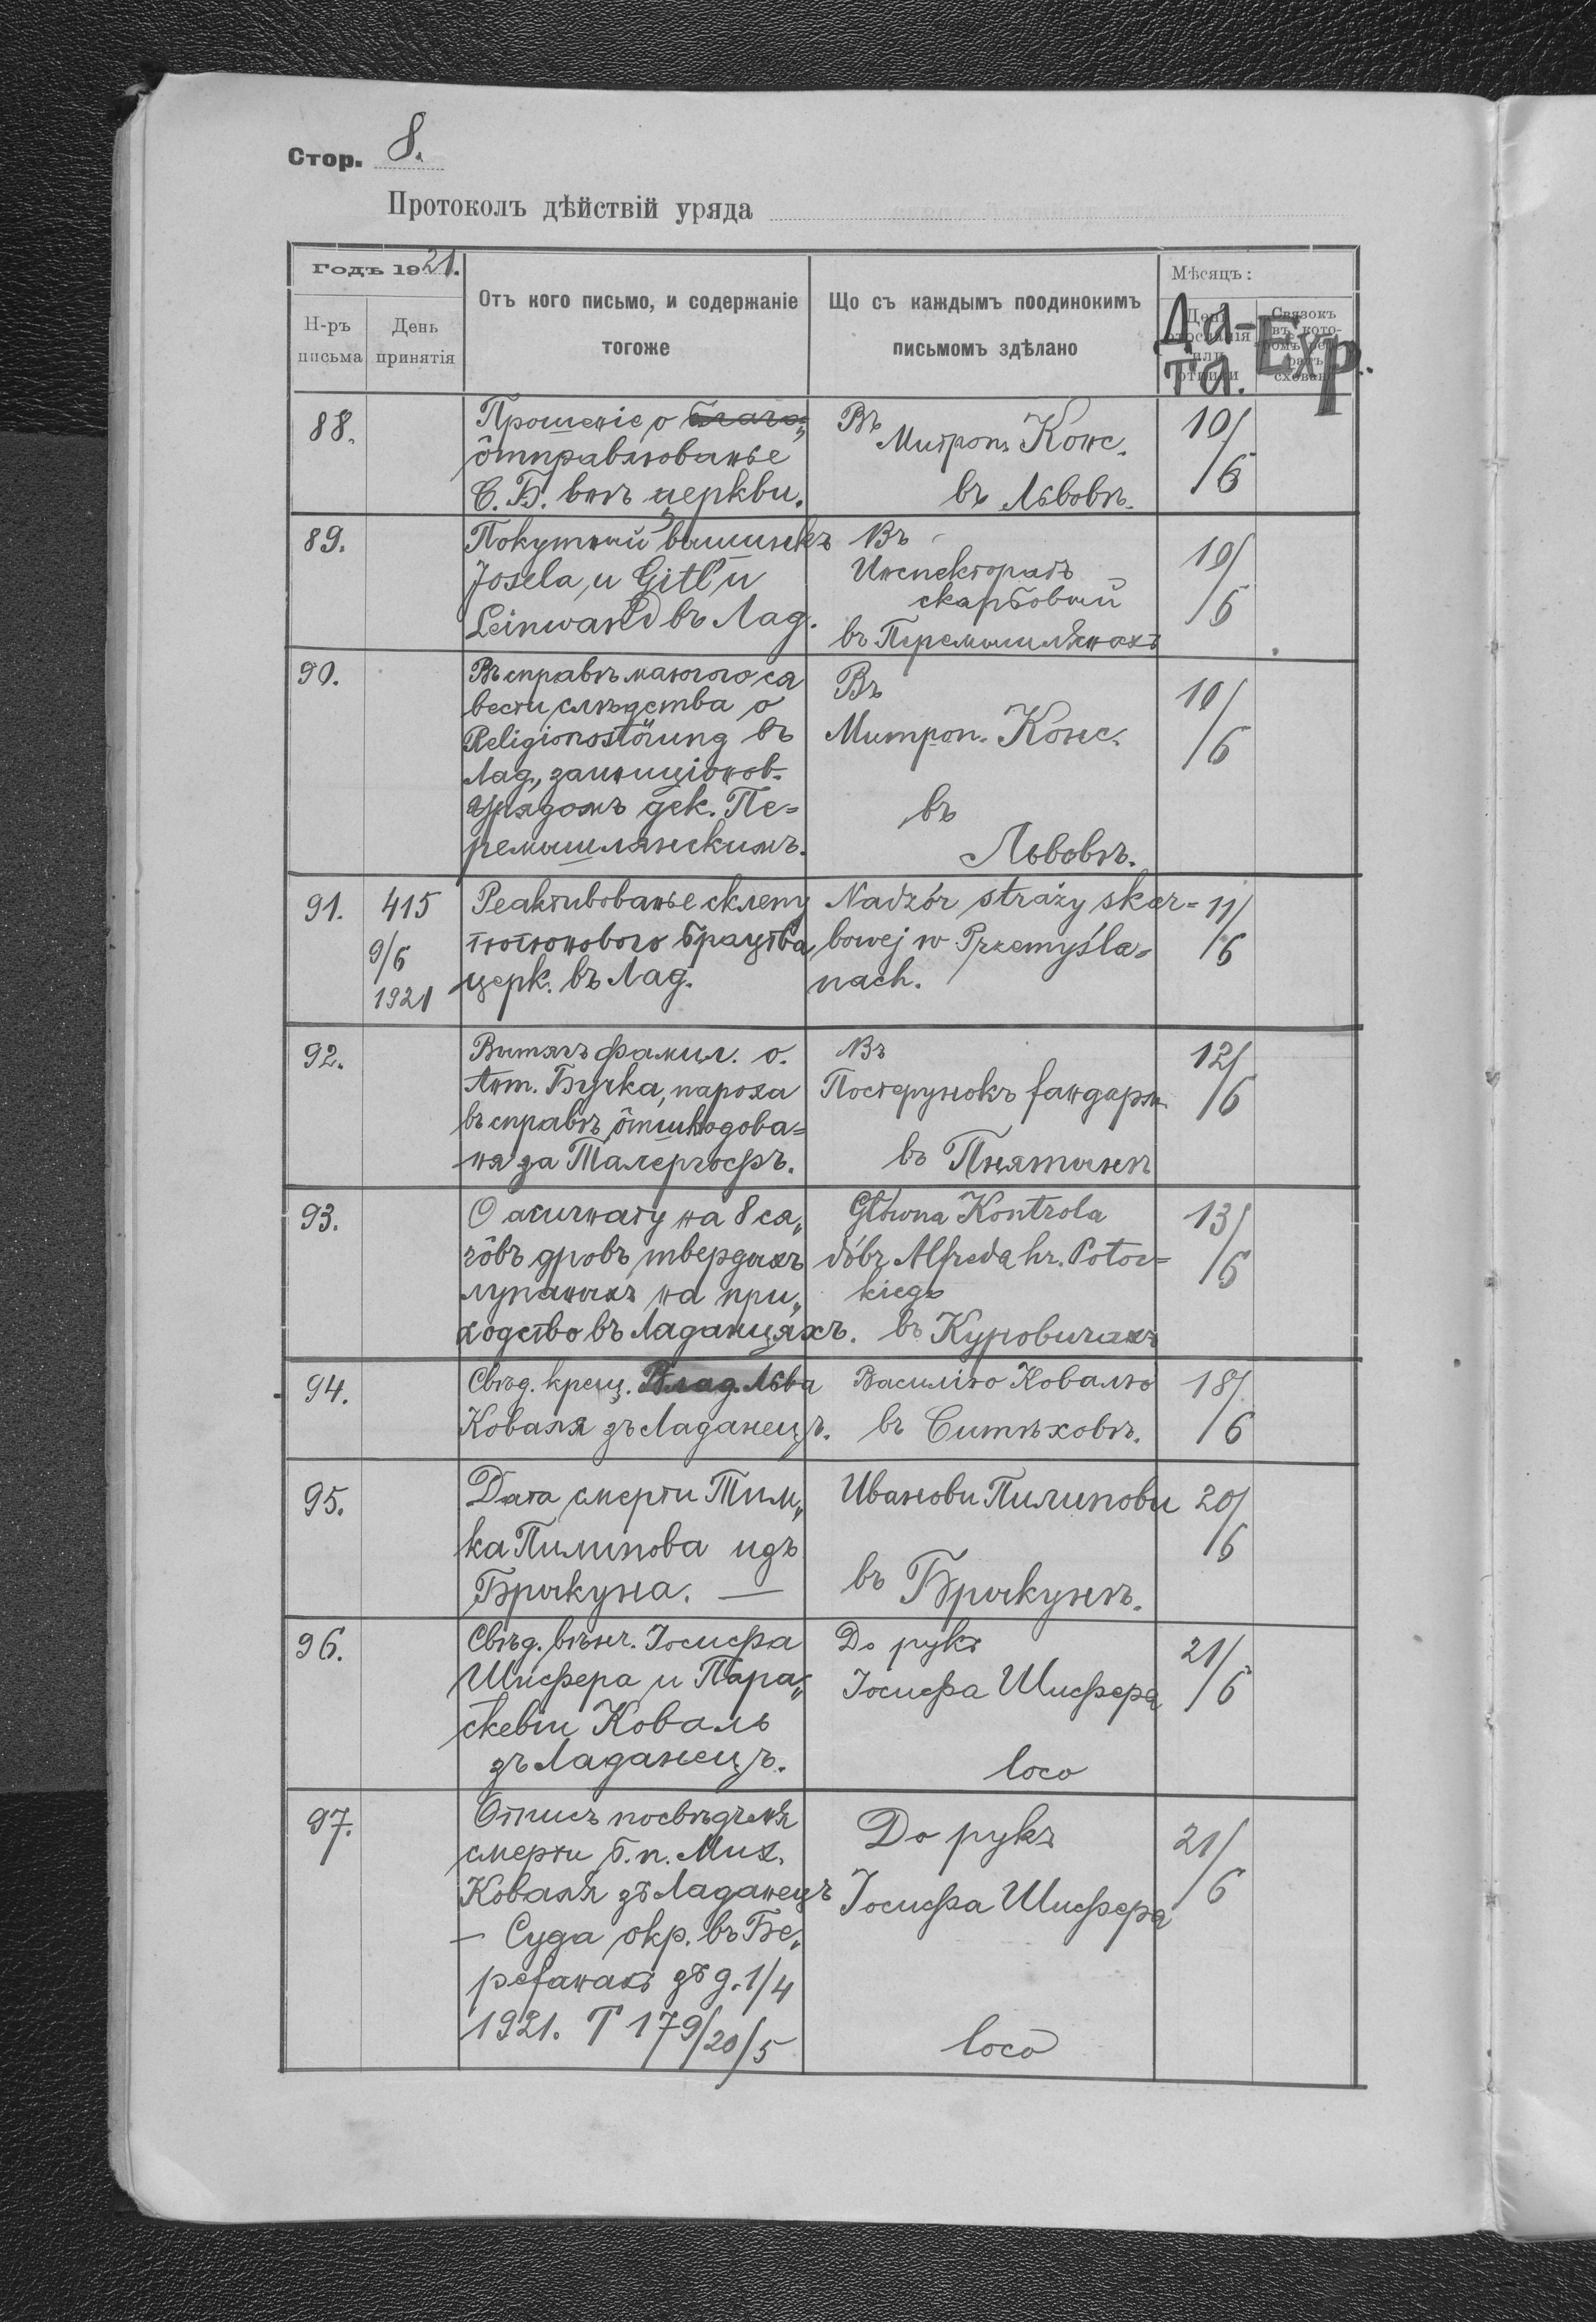 Стор. 8.
Протоколъ дѣйствій уряда
Годъ 1921.
Н-ръ письма
День принятія
Отъ кого письмо, и содержаніе
тогоже
Що съ каждымъ поодинокимъ
письмомъ здѣлано
Мѣсяцъ:
Да-
та.
Exp.
88.
Прошеніе о
ôтправлюванье
С. Б. внѣ церкви.
Въ
Митроп. Конс.
въ Львовѣ.
10/6
89.
Покутный вышинкъ
Josela и Gitl'и
Leinwand въ Лад.
Въ
Инспекторатъ
скарбовый
въ Перемышлянахъ
10/6
90.
Въ справѣ маючого ся
вести слѣдства о
Religionsstörung въ
Лад., заиниціонов.
Урядомъ дек. Пе=
ремышлянскимъ.
Въ
Митроп. Конс.
въ
Львовѣ.
10/6
91.
415
9/6
1921
Реактивованье склепу
тютюнового брацтва
церк. въ Лад.
Nadzór straży skar=
bowej w Przemyśla=
nach.
11/6
92.
Вытягъ фамил. о.
Ант. Бучка, пароха
въ справѣ ôтшкодова=
ня за Талергофъ.
Въ
Постерунокъ жандарм.
въ Пнятынѣ
12/6
93.
О асигнату на 8 ся„
гôвъ дровъ твердыхъ
лупаныхъ на при„
ходство въ Ладанцяхъ.
Główna Kontrola
dóbr Alfreda hr. Potoc=
kiego
въ Куровичахъ
13/6
94.
Свѣд. крещ. Влад. Льва
Коваля зъ Ладанецъ.
Василію Ковалю
въ Ситѣховѣ.
18/6
95.
Дата смерти Тим„
ка Пилипова изъ
Брыкуна. —
Иванови Пилипови
въ Брыкунѣ.
20/6
96.
Свѣд. вѣнч. Іосифа
Шифера и Пара„
скевіи Коваль
зъ Ладанецъ.
До рукъ
Іосифа Шифера
loco
21/6
97.
Отпись посвѣдченя
смерти б. п. Мих.
Коваля зъ Ладанецъ
— Суда окр. въ Бе„
режанахъ зъ д. 1/4
1921. T 179/20/5
До рукъ
Іосифа Шифера
loco
21/6